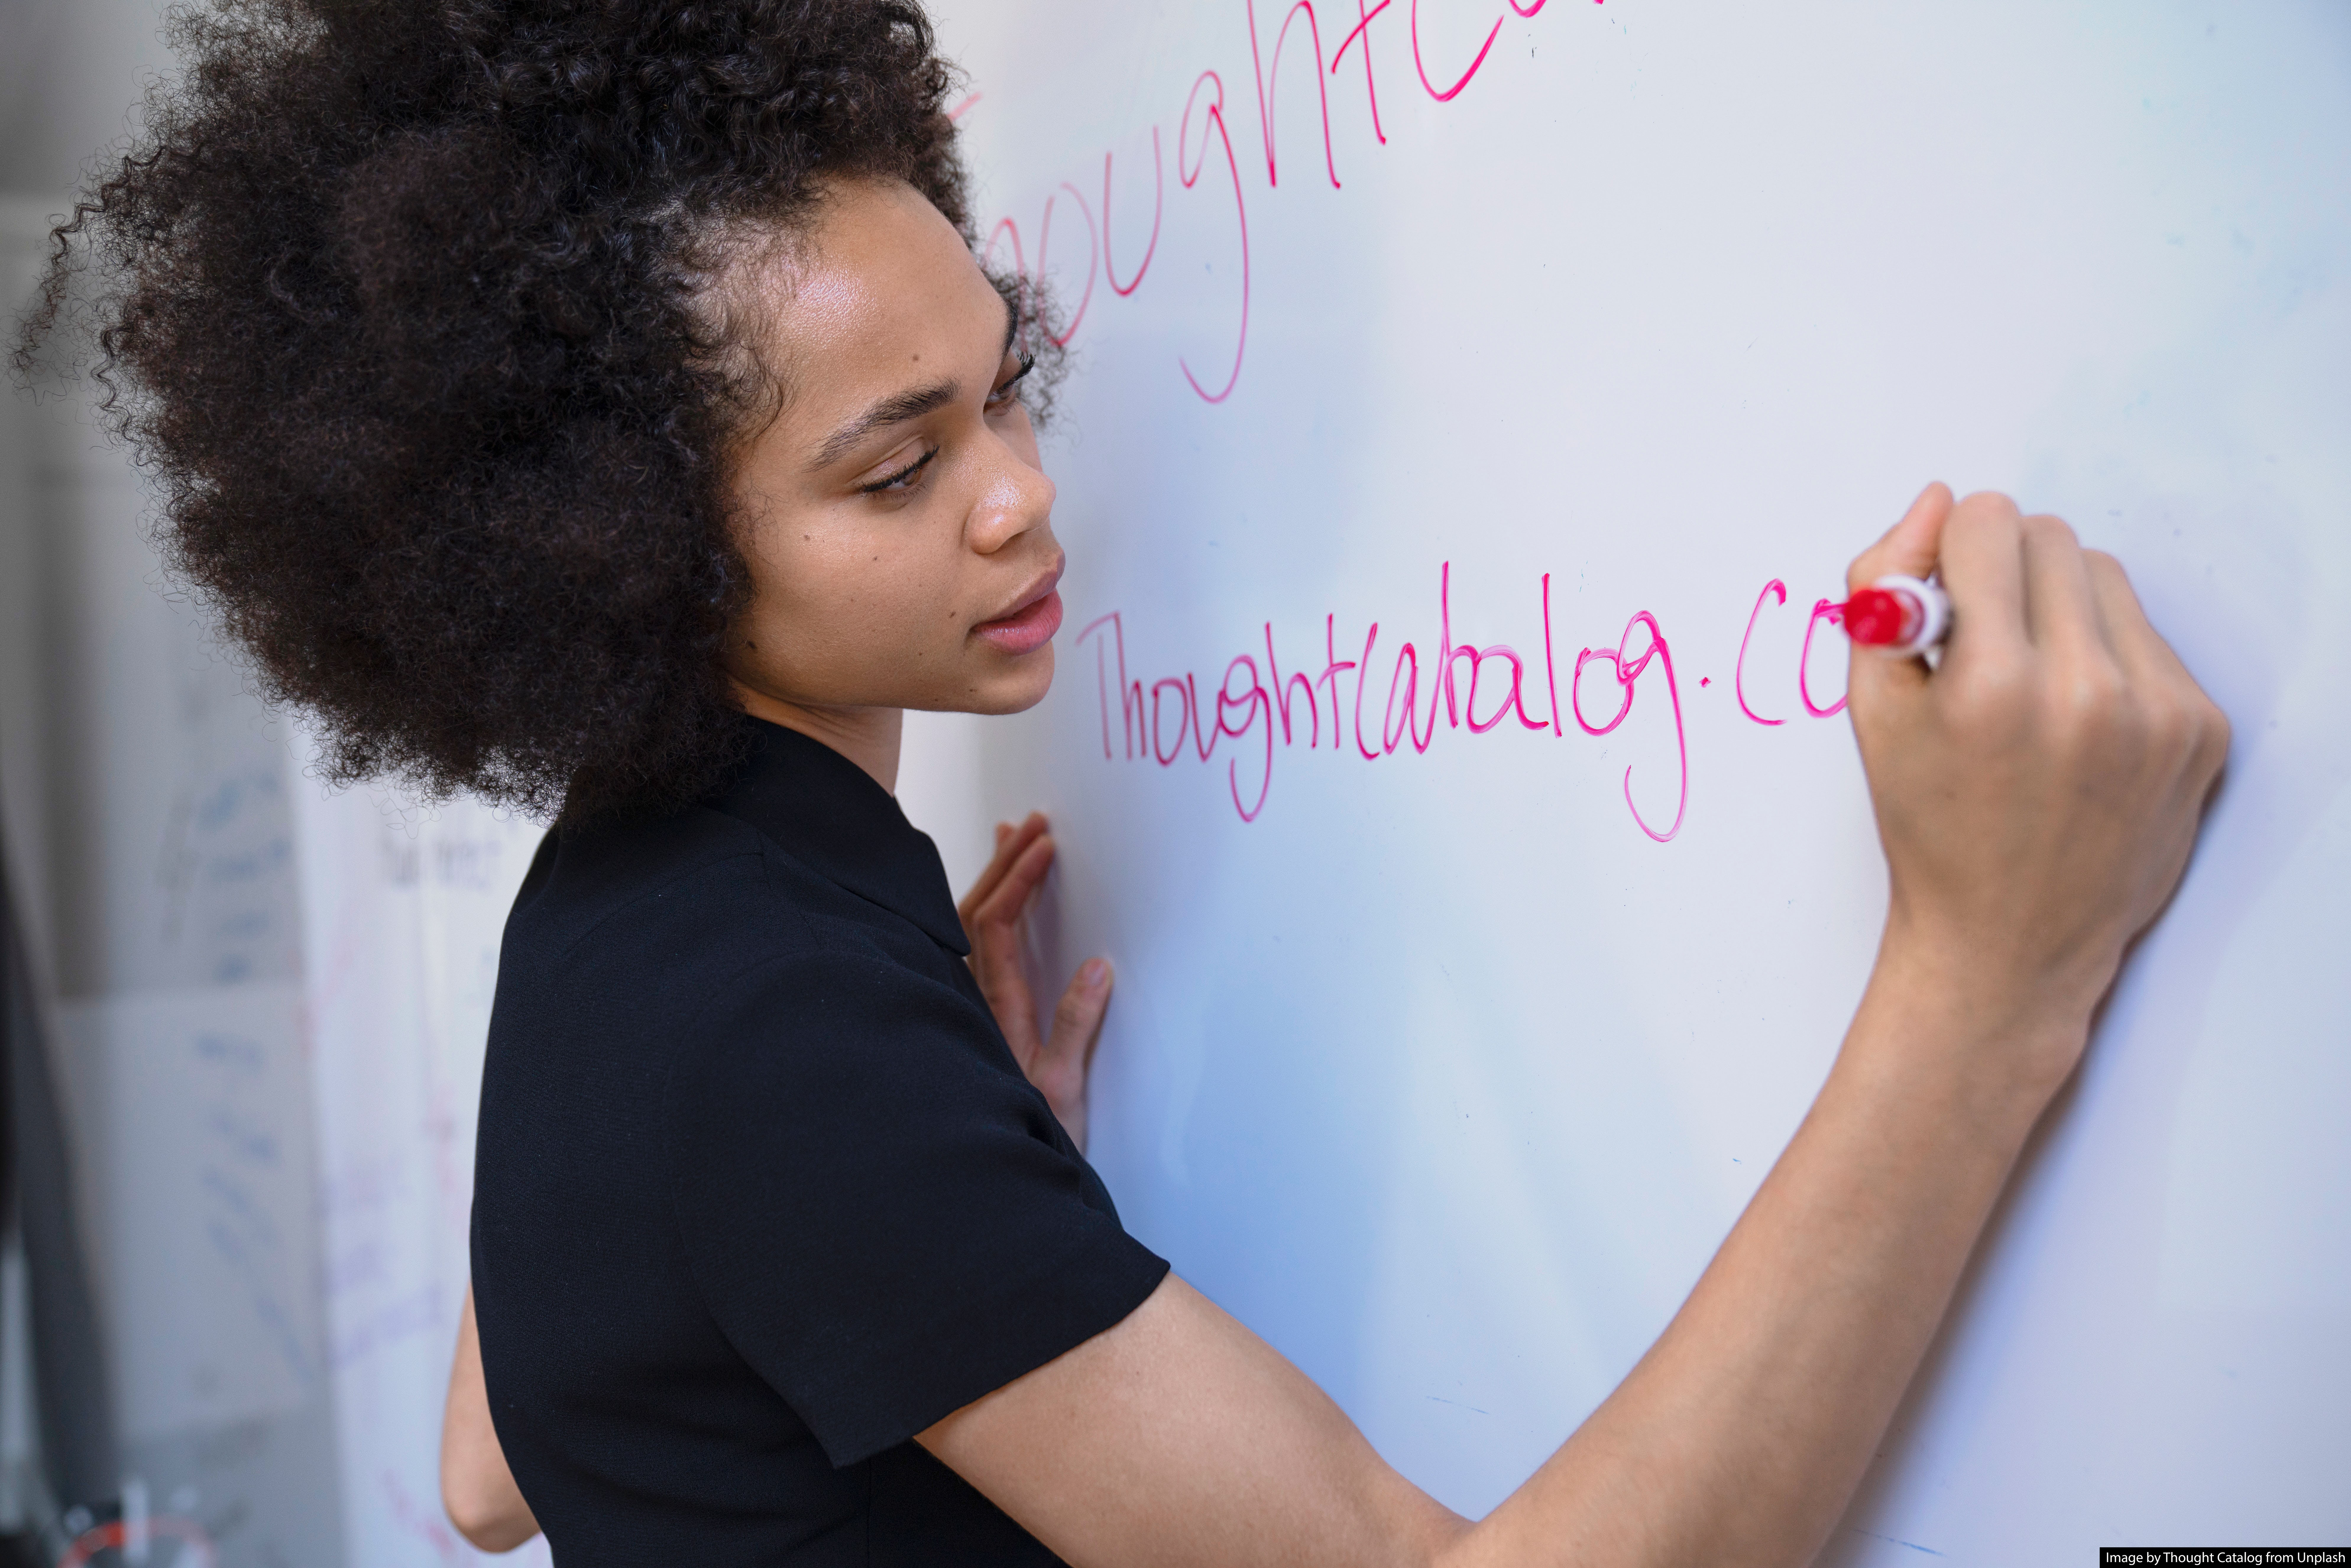 ThoughtCa
Thoughtcatalog.co
Image by Thought Catalog from Unplash